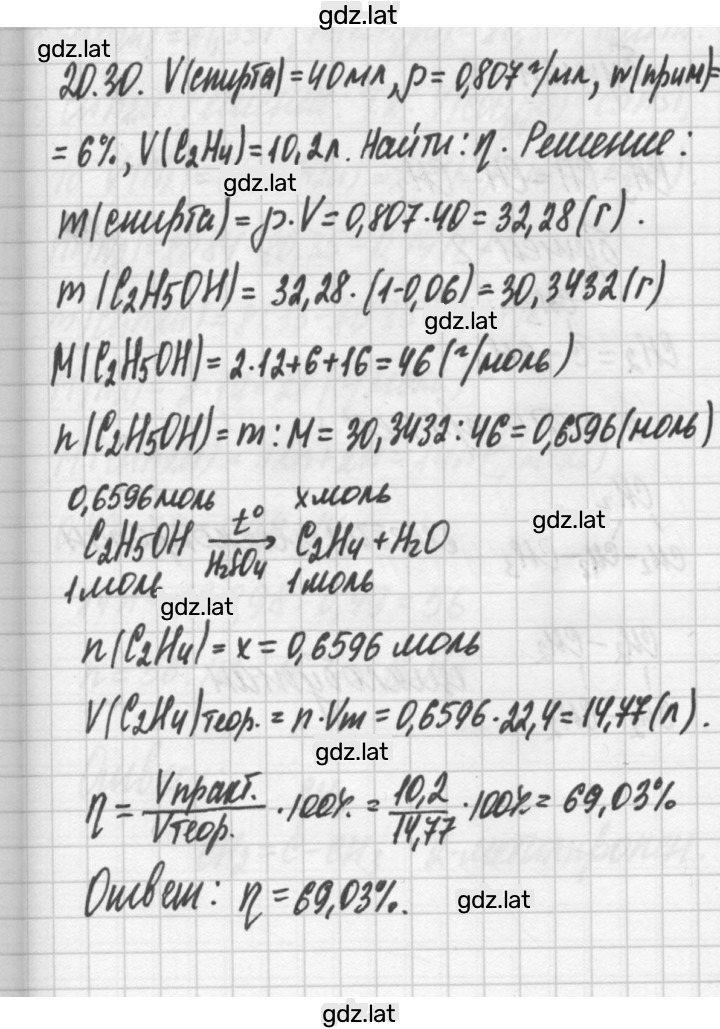 gdz.lat
gdz.lat
20.30. V(спирта)=40мл, ρ= 0,807 г/мл, m(прим)=
= 6%, V(C₂H₄)=10,2л. Найти: η. Решение:
gdz.lat
m(спирта)= ρ·V=0,807·40=32,28(г).
m(C₂H₅OH)= 32,28·(1-0,06)=30,3432(г)
gdz.lat
M(C₂H₅OH)= 2·12+6+16=46(г/моль)
n(C₂H₅OH)= m:M= 30,3432:46=0,6596(моль)
0,6596моль x моль
gdz.lat
C₂H₅OH t° H₂SO₄ → C₂H₄+H₂O
1моль 1моль
gdz.lat
n(C₂H₄)= x= 0,6596 моль
V(C₂H₄)теор.= n·Vm=0,6596·22,4=14,77(л).
gdz.lat
η = Vпракт./Vтеор. ·100% = 10,2/14,77 ·100%= 69,03%
Ответ: η =69,03%.
gdz.lat
gdz.lat